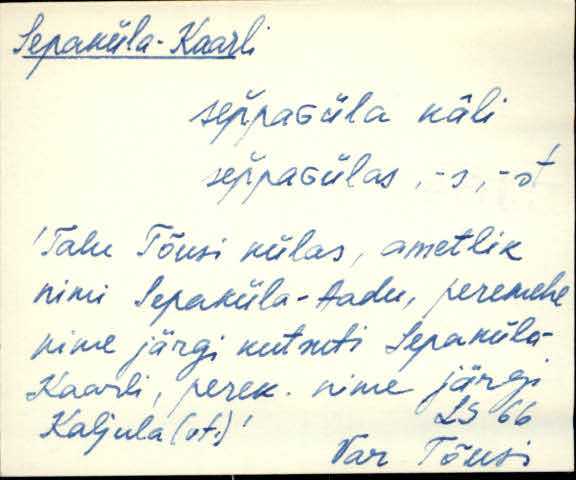 Sepaküla-Kaarli
sep̆paGüla kàli
sep̆paGülas, -s, -st
'Talu Tõusi külas, ametlik
nimi Sepaküla-Aadu, peremehe
nime järgi kutsuti Sepaküla-
Kaarli, perek. nime järgi
Kaljula (vt.)'
LS 66
Var Tõusi